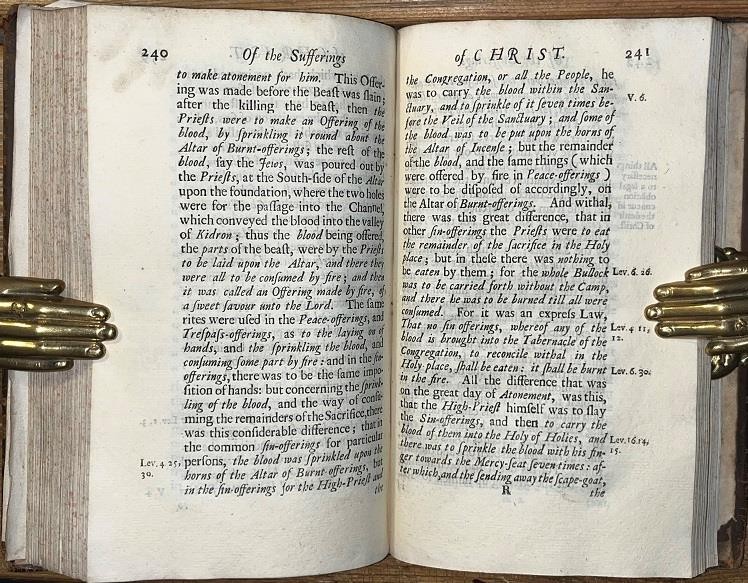 240 Of the Sufferings
to make atonement for him. This Offer-
ing was made before the Beaſt was ſlain;
after the killing the beaſt, then the
Prieſts were to make an Offering of the
blood, by ſprinkling it round about the
Altar of Burnt-offerings; the reſt of the
blood, ſay the Jews, was poured out by
the Prieſts, at the South-ſide of the Altar
upon the foundation, where the two holes
were for the paſſage into the Channel,
which conveyed the blood into the valley
of Kidron; thus the blood being offered,
the parts of the beaſt, were by the Prieſts
to be laid upon the Altar, and there they
were all to be conſumed by fire; and then
it was called an Offering made by fire, of
a ſweet ſavour unto the Lord. The ſame
rites were uſed in the Peace-offerings, and
Treſpaſs-offerings, as to the laying on of
hands, and the ſprinkling the blood, and
conſuming ſome part by fire: and in the ſin-
offerings, there was to be the ſame impo-
ſition of hands: but concerning the ſprink-
ling of the blood, and the way of conſu-
ming the remainders of the Sacrifice, there
was this conſiderable difference; that in
the common ſin-offerings for particular
Lev. 4 25, perſons, the blood was ſprinkled upon the
30. horns of the Altar of Burnt offerings, but
in the ſin-offerings for the High-Prieſt and
the
of CHRIST. 241
the Congregation, or all the People, he
was to carry the blood within the San-
ctuary, and to ſprinkle of it ſeven times be- V. 6.
fore the Veil of the Sanctuary; and ſome of
the blood was to be put upon the horns of
the Altar of Incenſe; but the remainder
of the blood, and the ſame things (which
were offered by fire in Peace-offerings)
were to be diſpoſed of accordingly, on
the Altar of Burnt-offerings. And withal,
there was this great difference, that in
other ſin-offerings the Prieſts were to eat
the remainder of the ſacrifice in the Holy
place; but in theſe there was nothing to
be eaten by them; for the whole Bullock Lev. 6. 26.
was to be carried forth without the Camp,
and there he was to be burned till all were
conſumed. For it was an expreſs Law,
That no ſin offerings, whereof any of the Lev. 4 11,
blood is brought into the Tabernacle of the 12.
Congregation, to reconcile withal in the
Holy place, ſhall be eaten: it ſhall be burnt Lev. 6. 30.
in the fire. All the difference that was
on the great day of Atonement, was this,
that the High-Prieſt himſelf was to ſlay
the Sin-offerings, and then to carry the
blood of them into the Holy of Holies, and Lev. 16.14,
there was to ſprinkle the blood with his fin- 15.
ger towards the Mercy-ſeat ſeven times: af-
ter which, and the ſending away the ſcape-goat,
R the